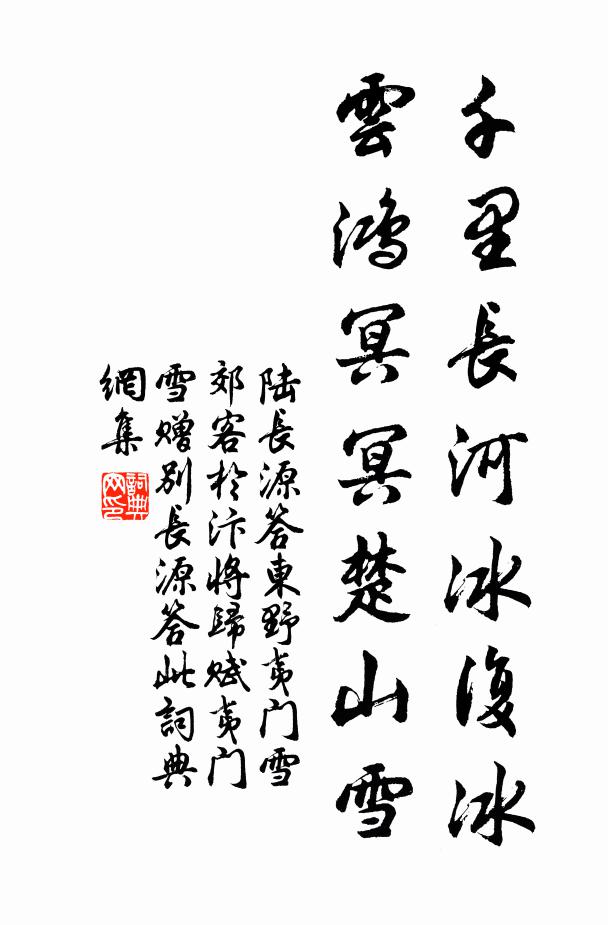 千里長河冰復冰
雲鴻冥冥楚山雪
陸長源答東野夷門雪
郊客於汴將歸賦夷門
雪贈別長源答此詞典
網集
詞典
网印